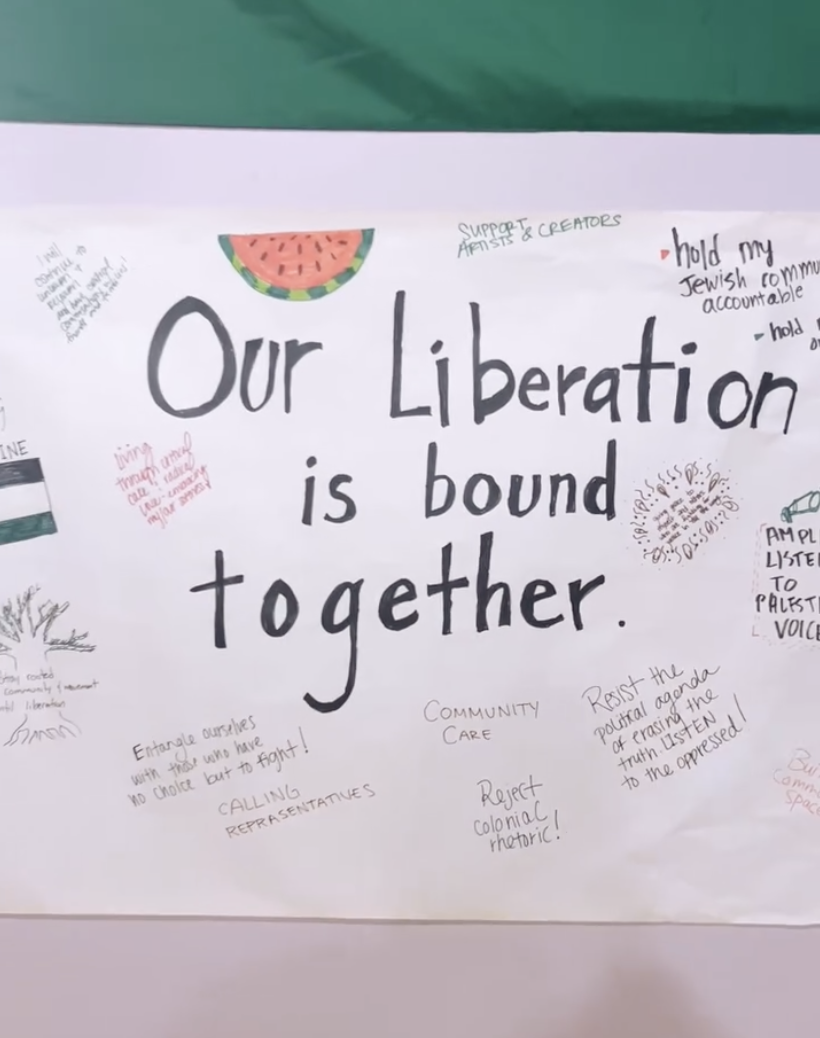 I will
continue to
SUPPORT
ARTISTS & CREATORS
hold my
Jewish commu
accountable
hold
Our Liberation
is bound
together.
INE
living
through critical
care, radical
love
AMPL
LISTE
TO
PALESTI
VOICE
Stay rooted
community & movement
until liberation
Entangle ourselves
with those who have
no choice but to fight!
CALLING
REPRASENTATIVES
COMMUNITY
CARE
Reject
colonial
rhetoric!
Resist the
political agenda
of erasing the
truth LISTEN
to the oppressed!
Bui
Comm
Space